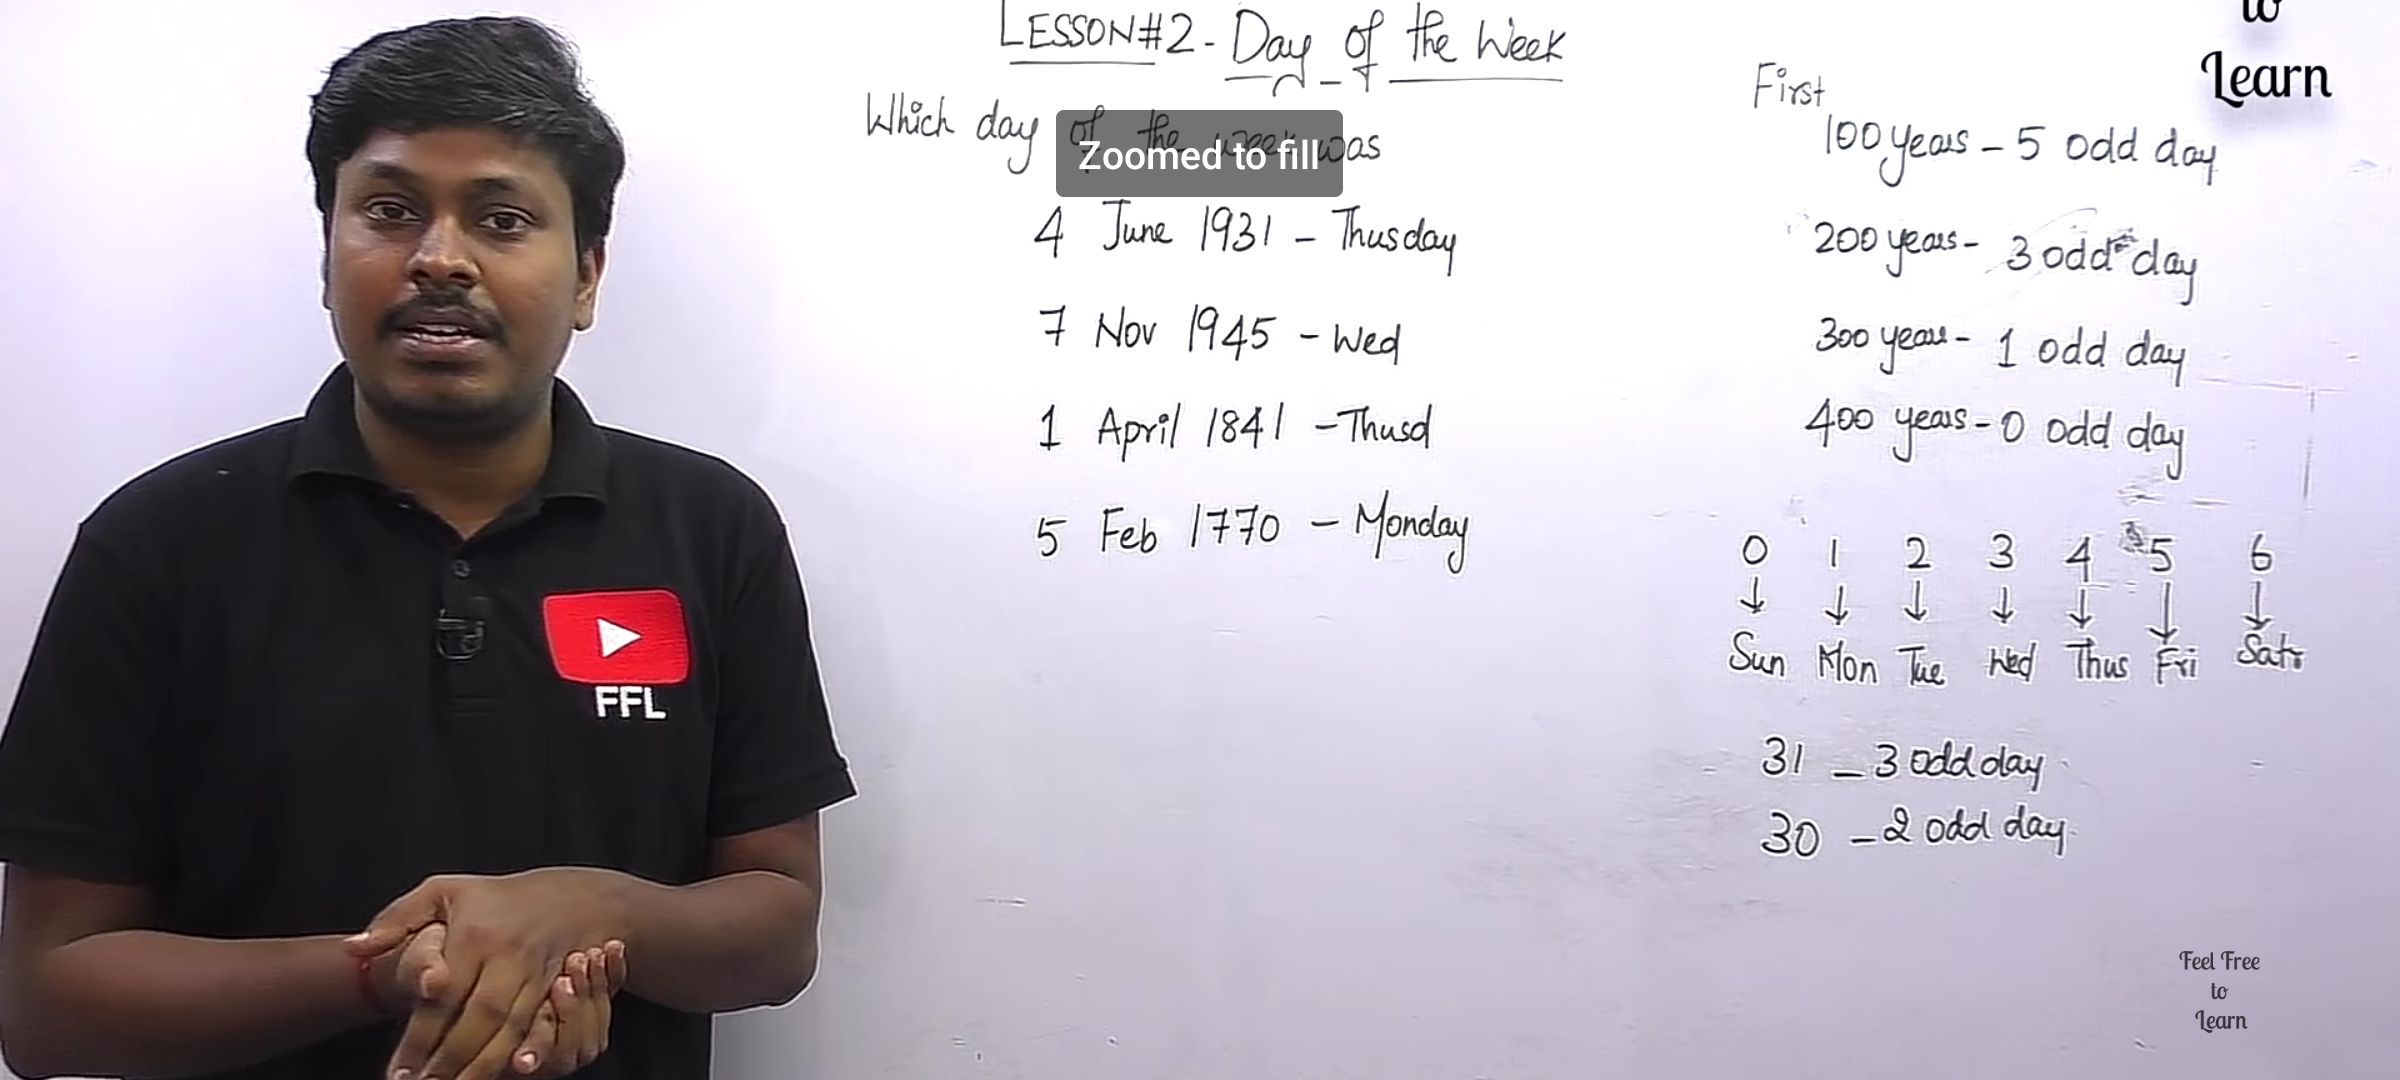 LESSON#2 - Day of the Week
Which day of the week was
Zoomed to fill
4 June 1931 - Thusday
7 Nov 1945 - Wed
1 April 1841 - Thusd
5 Feb 1770 - Monday
to
Learn
First
100 years - 5 odd day
200 years - 3 odd day
300 years - 1 odd day
400 years - 0 odd day
0 1 2 3 4 5 6
Sun Mon Tue Wed Thus Fri Satr
31 - 3 odd day
30 - 2 odd day
FFL
Feel Free
to
Learn